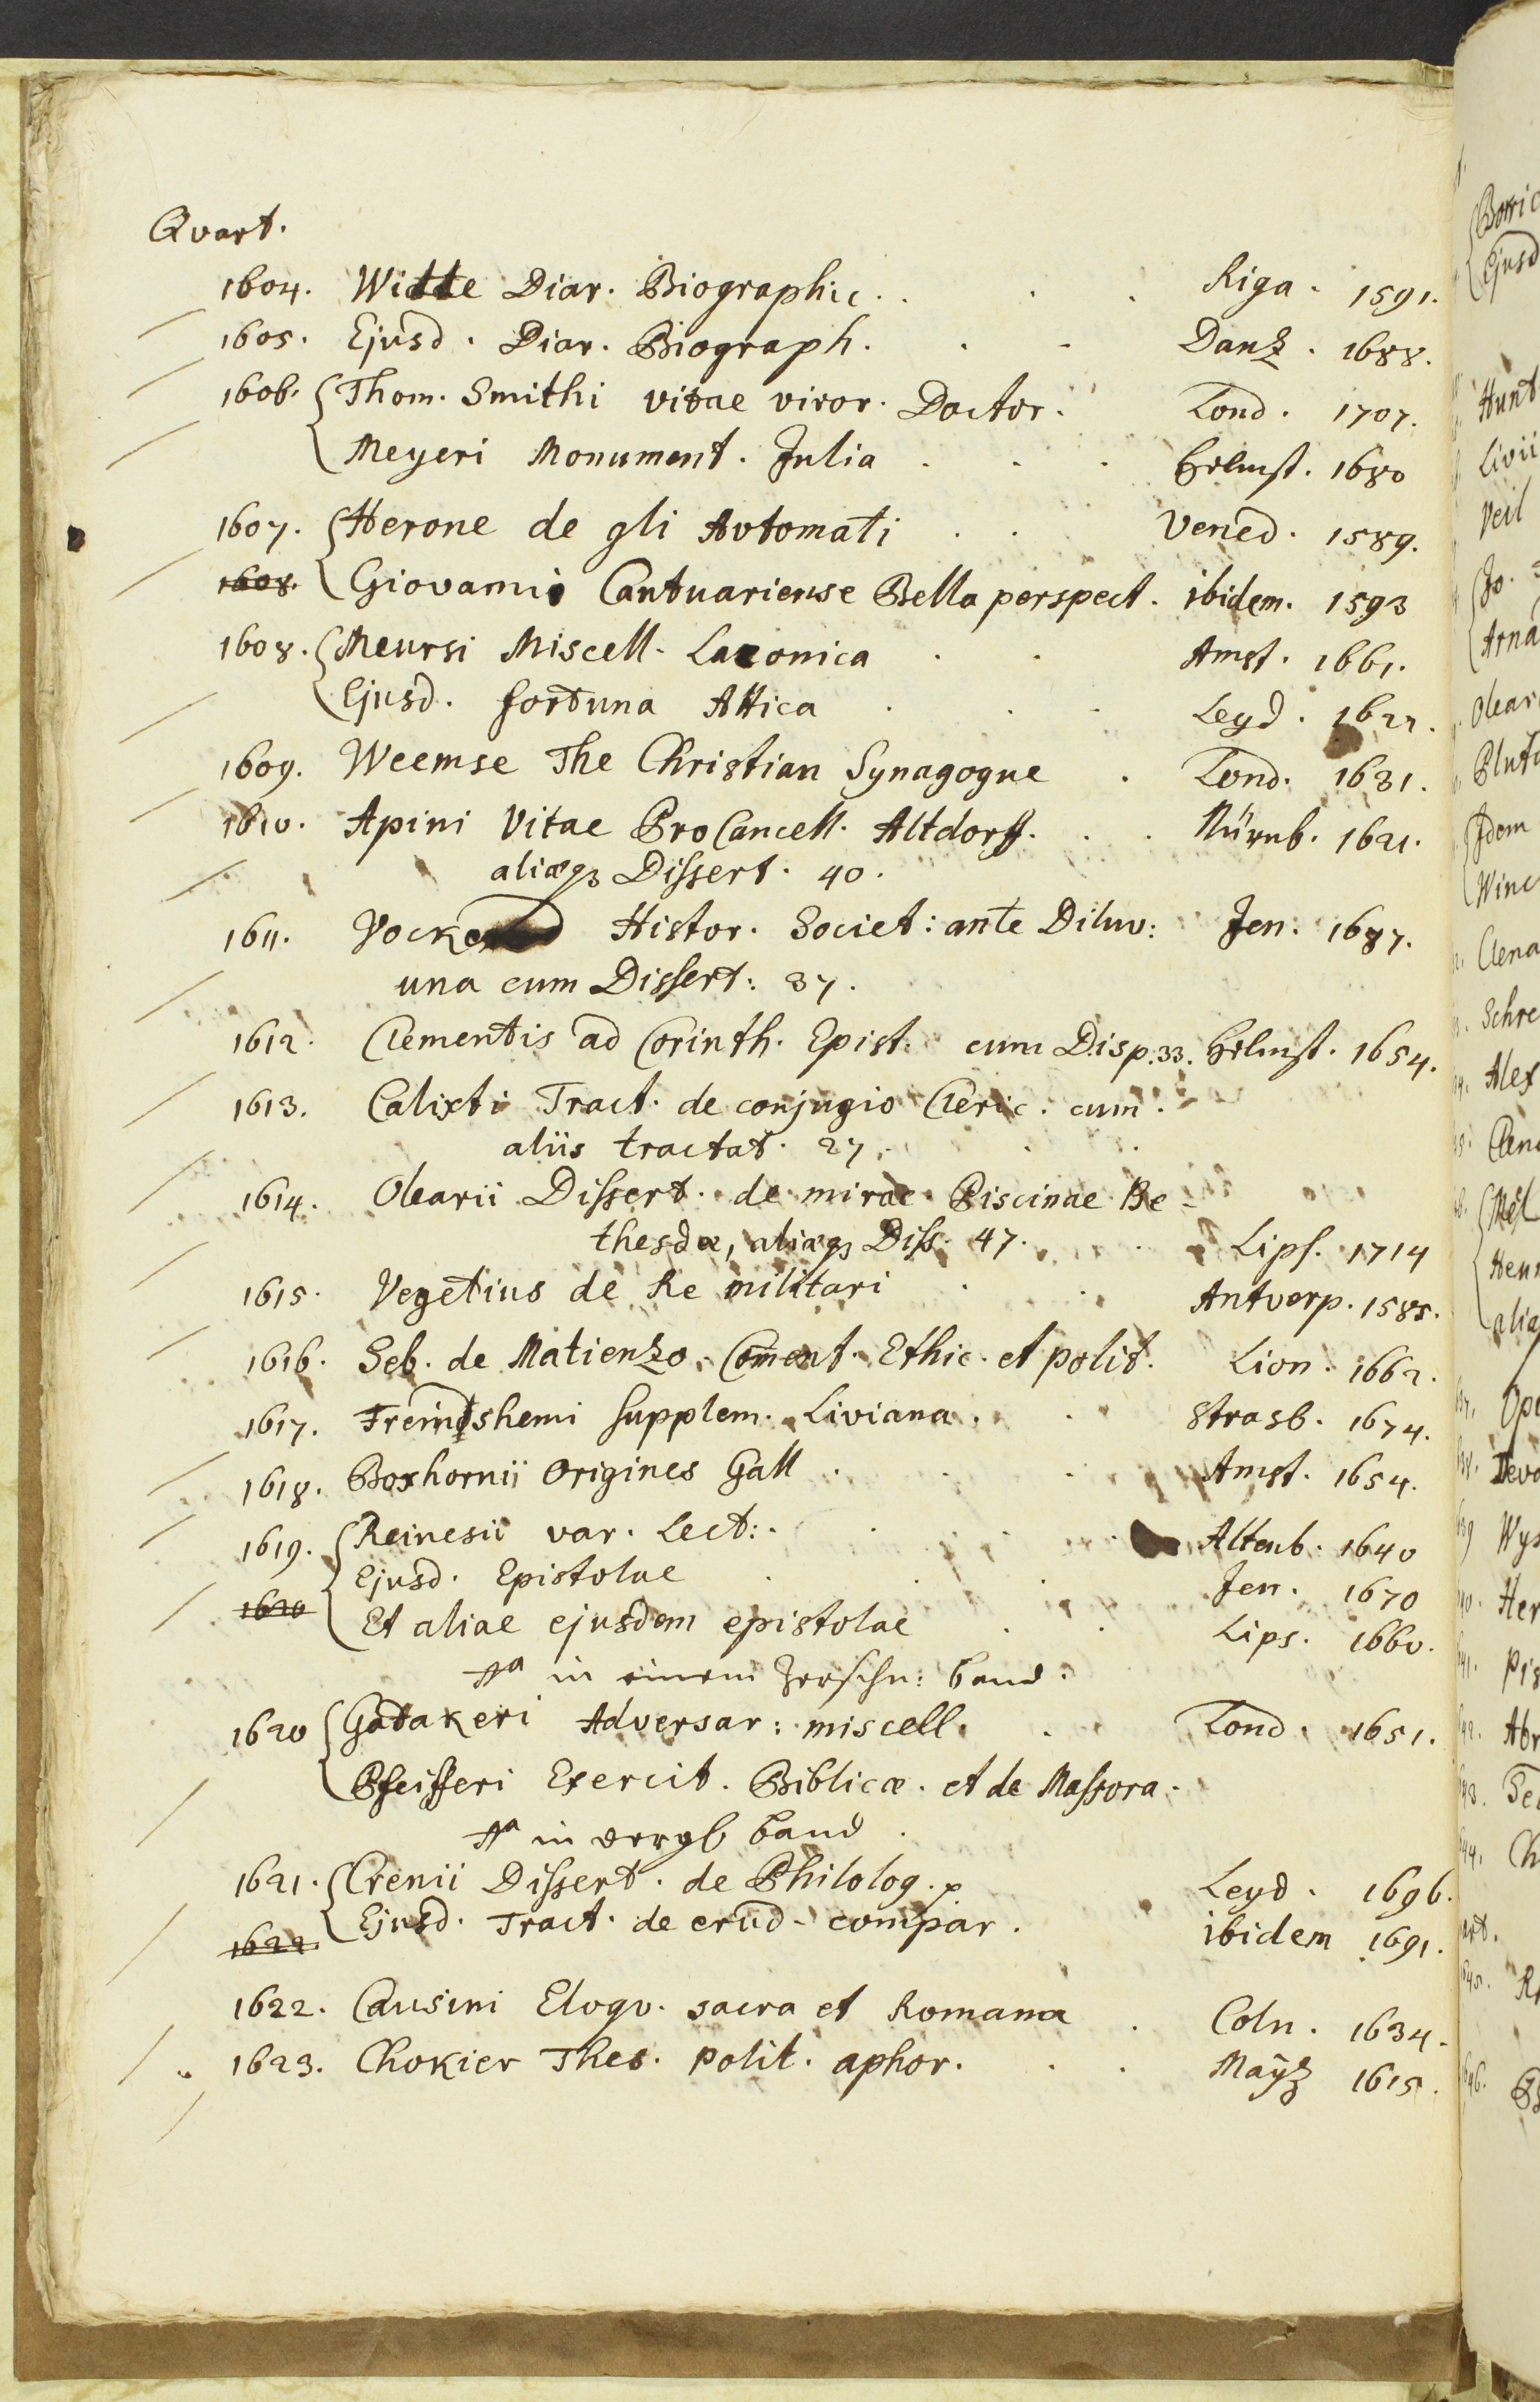 Qvart.
1604. Witte Diar. Biographic. . . . Riga. 1591.
1605. Ejusd. Diar. Biograph. . . Danz. 1688.
1606. Thom. Smithi vitae viror. Doctor. Lond. 1707.
Meyeri Monument. Julia . . . Helmst. 1680
1607. Herone de gli Automati . . Vened. 1589.
1608. Giovanni Cantuariense Bella perspect. ibidem. 1593
1608. Meursi Miscell. Laconica . . Amst. 1661.
Ejusd. fortuna Attica . . . Leyd. 1622.
1609. Weemse The Christian Synagogue . Lond. 1631.
1610. Apini Vitae ProCancell. Altdorff. . . Nürnb. 1621.
aliæqz Dissert. 40.
1611. Histor. Societ: ante Diluv: Jen. 1687.
una cum Dissert: 37.
1612. Clementis ad Corinth. Epist. cum Disp. 33. Helmst. 1654.
1613. Calixti Tract. de conjugio Cleric. cum
aliis tractat. 27. . .
1614. Olearii Dissert. de mirac. Piscinae Be-
thesdæ, aliæqz Diss. 47. . . Lips. 1714
1615. Vegetius de Re militari . . Antverp. 1585.
1616. Seb. de Matienzo. Coment. Ethic. et polit. Lion. 1662.
1617. Freindshemi supplem. Liviana. . . Strasb. 1674.
1618. Boxhornii Origines Gall . . . Amst. 1654.
1619. Reinesii var. Lect: . . . Altenb. 1640
Ejusd. Epistolae . . . Jen. 1670
1620 Et aliae ejusdem epistolae . . Lips. 1660.
in einem band.
1620 Gatakeri Adversar: miscell. . . Lond. 1651.
Pfeifferi Exercit. Biblicæ. et de Massora.
in band.
1621. Crenii Dissert. de Philolog. Leyd. 1696.
Ejusd. Tract. de erud. compar. ibidem 1691.
1622.
1622. Causini Eloqv. sacra et Romana . Coln. 1634.
1623. Chokier Thes. polit. aphor. . . Mayz 1615.
Ejusd
Hunt
Livii
Veil
Jo.
Arna
Olear
Pluta
Idem
Winc
Clena
Schre
Alex